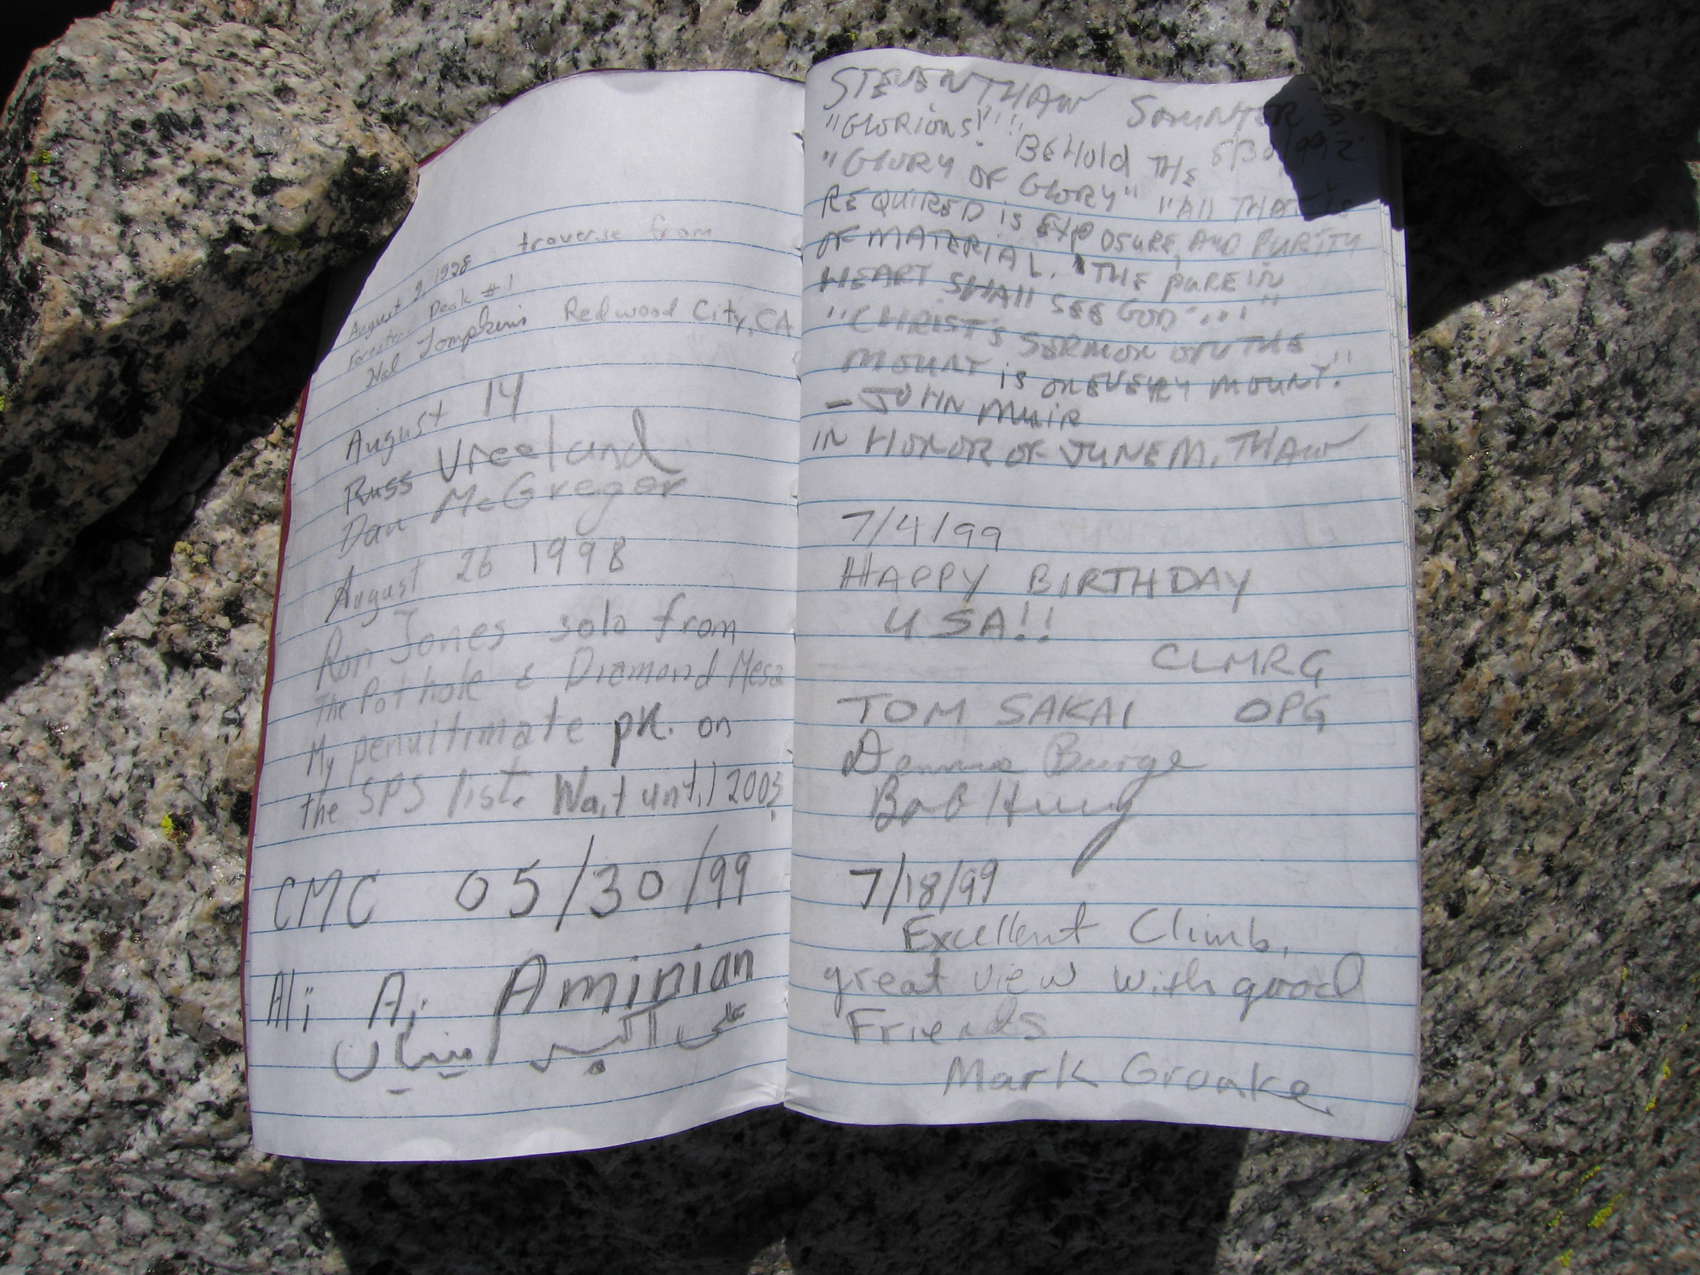 August 2, 1998 traverse from
Forester Peak #1
Hal Tompkins Redwood City, CA
August 14
Russ Vreeland
Dan McGregor
August 26 1998
Ron Jones solo from
The Pothole & Diamond Mesa
My penultimate pk. on
the SPS list. Wait until 2003
CMC 05/30/99
Ali A. Aminian
علی اکبر امینیان
STEVEN THAW SAUNTER
"GLORIOUS!"" BEHOLD THE
"GLORY OF GLORY" "All THAT IS
REQUIRED is EXPOSURE, AND PURITY
OF MATERIAL. "THE PURE IN
HEART SHAll SEE GOD"..."
"CHRIST'S SERMON ON THE
MOUNT is ON EVERY MOUNT."
– JOHN MUIR
IN HONOR OF JUNE M. THAW
7/4/99
HAPPY BIRTHDAY
USA!!
CLMRG
TOM SAKAI OPG
Dennis Burge
Bob Huey
7/18/99
Excellent Climb,
great view with good
Friends
Mark Groake